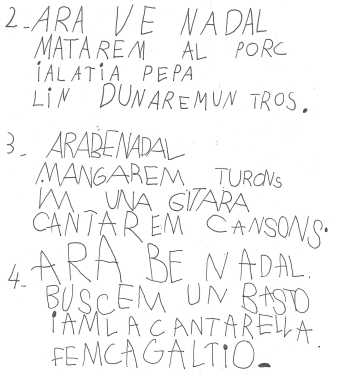 2-ARA VE NADAL
MATAREM AL PORC
iALATiA PEPA
LiN DUNAREMUN TROS.
3- ARABENADAL
MANGAREM TURONS
IM UNA GiTARA
CANTAREM CANSONS.
4- ARA BE NADAL.
BUSCEM UN BASTO
iAMLACANTARELLA
FEMCAGALTIO.